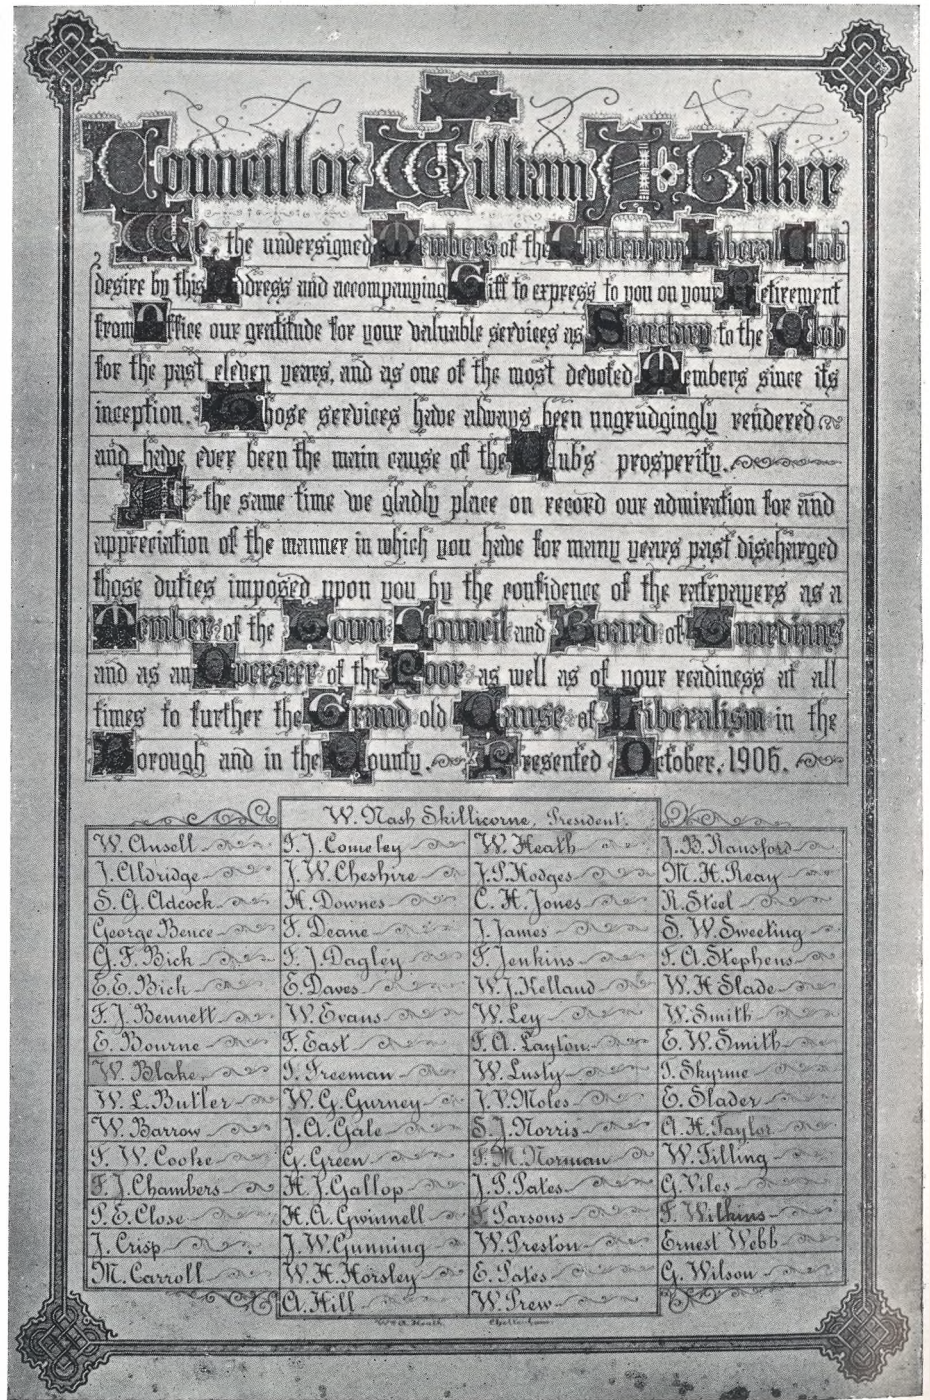 Councillor William J. Baker
We, the undersigned Members of the Cheltenham Liberal Club
desire by this Address and accompanying Gift to express to you on your Retirement
from Office our gratitude for your valuable services as Secretary to the Club
for the past eleven years, and as one of the most devoted Members since its
inception. Those services have always been ungrudgingly rendered
and have ever been the main cause of the Club's prosperity.
At the same time we gladly place on record our admiration for and
appreciation of the manner in which you have for many years past discharged
those duties imposed upon you by the confidence of the ratepayers as a
Member of the Town Council and Board of Guardians
and as an Overseer of the Poor as well as of your readiness at all
times to further the Grand old Cause of Liberalism in the
Borough and in the County. Presented October, 1906.
W. Nash Skillicorne, President.
W. Ansell
J. Aldridge
S. G. Adcock
George Bence
G. F. Bick
E. E. Bick
F. J. Bennett
E. Bourne
W. Blake
W. L. Butler
W. Barrow
F. W. Cooke
F. J. Chambers
P. E. Close
J. Crisp
M. Carroll
T. J. Comeley
J. W. Cheshire
H. Downes
F. Deane
F. J. Dagley
E. Daves
W. Evans
F. East
T. Freeman
W. G. Gurney
J. A. Gale
G. Green
H. J. Gallop
H. A. Gwinnell
J. W. Gunning
W. H. Horsley
A. Hill
W. Heath
J. P. Hodges
C. H. Jones
J. James
F. Jenkins
W. J. Kelland
W. Ley
F. A. Layton
W. Lusty
J. V. Moles
S. J. Norris
F. M. Norman
J. P. Pates
Parsons
W. Preston
E. Pates
W. Prew
J. B. Ransford
M. H. Reay
R. Steel
S. W. Sweeting
F. A. Stephens
W. H Slade
W. Smith
E. W. Smith
T. Skyrme
E. Slader
A. H. Taylor
W. Tilling
G. Viles
F. Wilkins
Ernest Webb
G. Wilson
Heath. Cheltenham